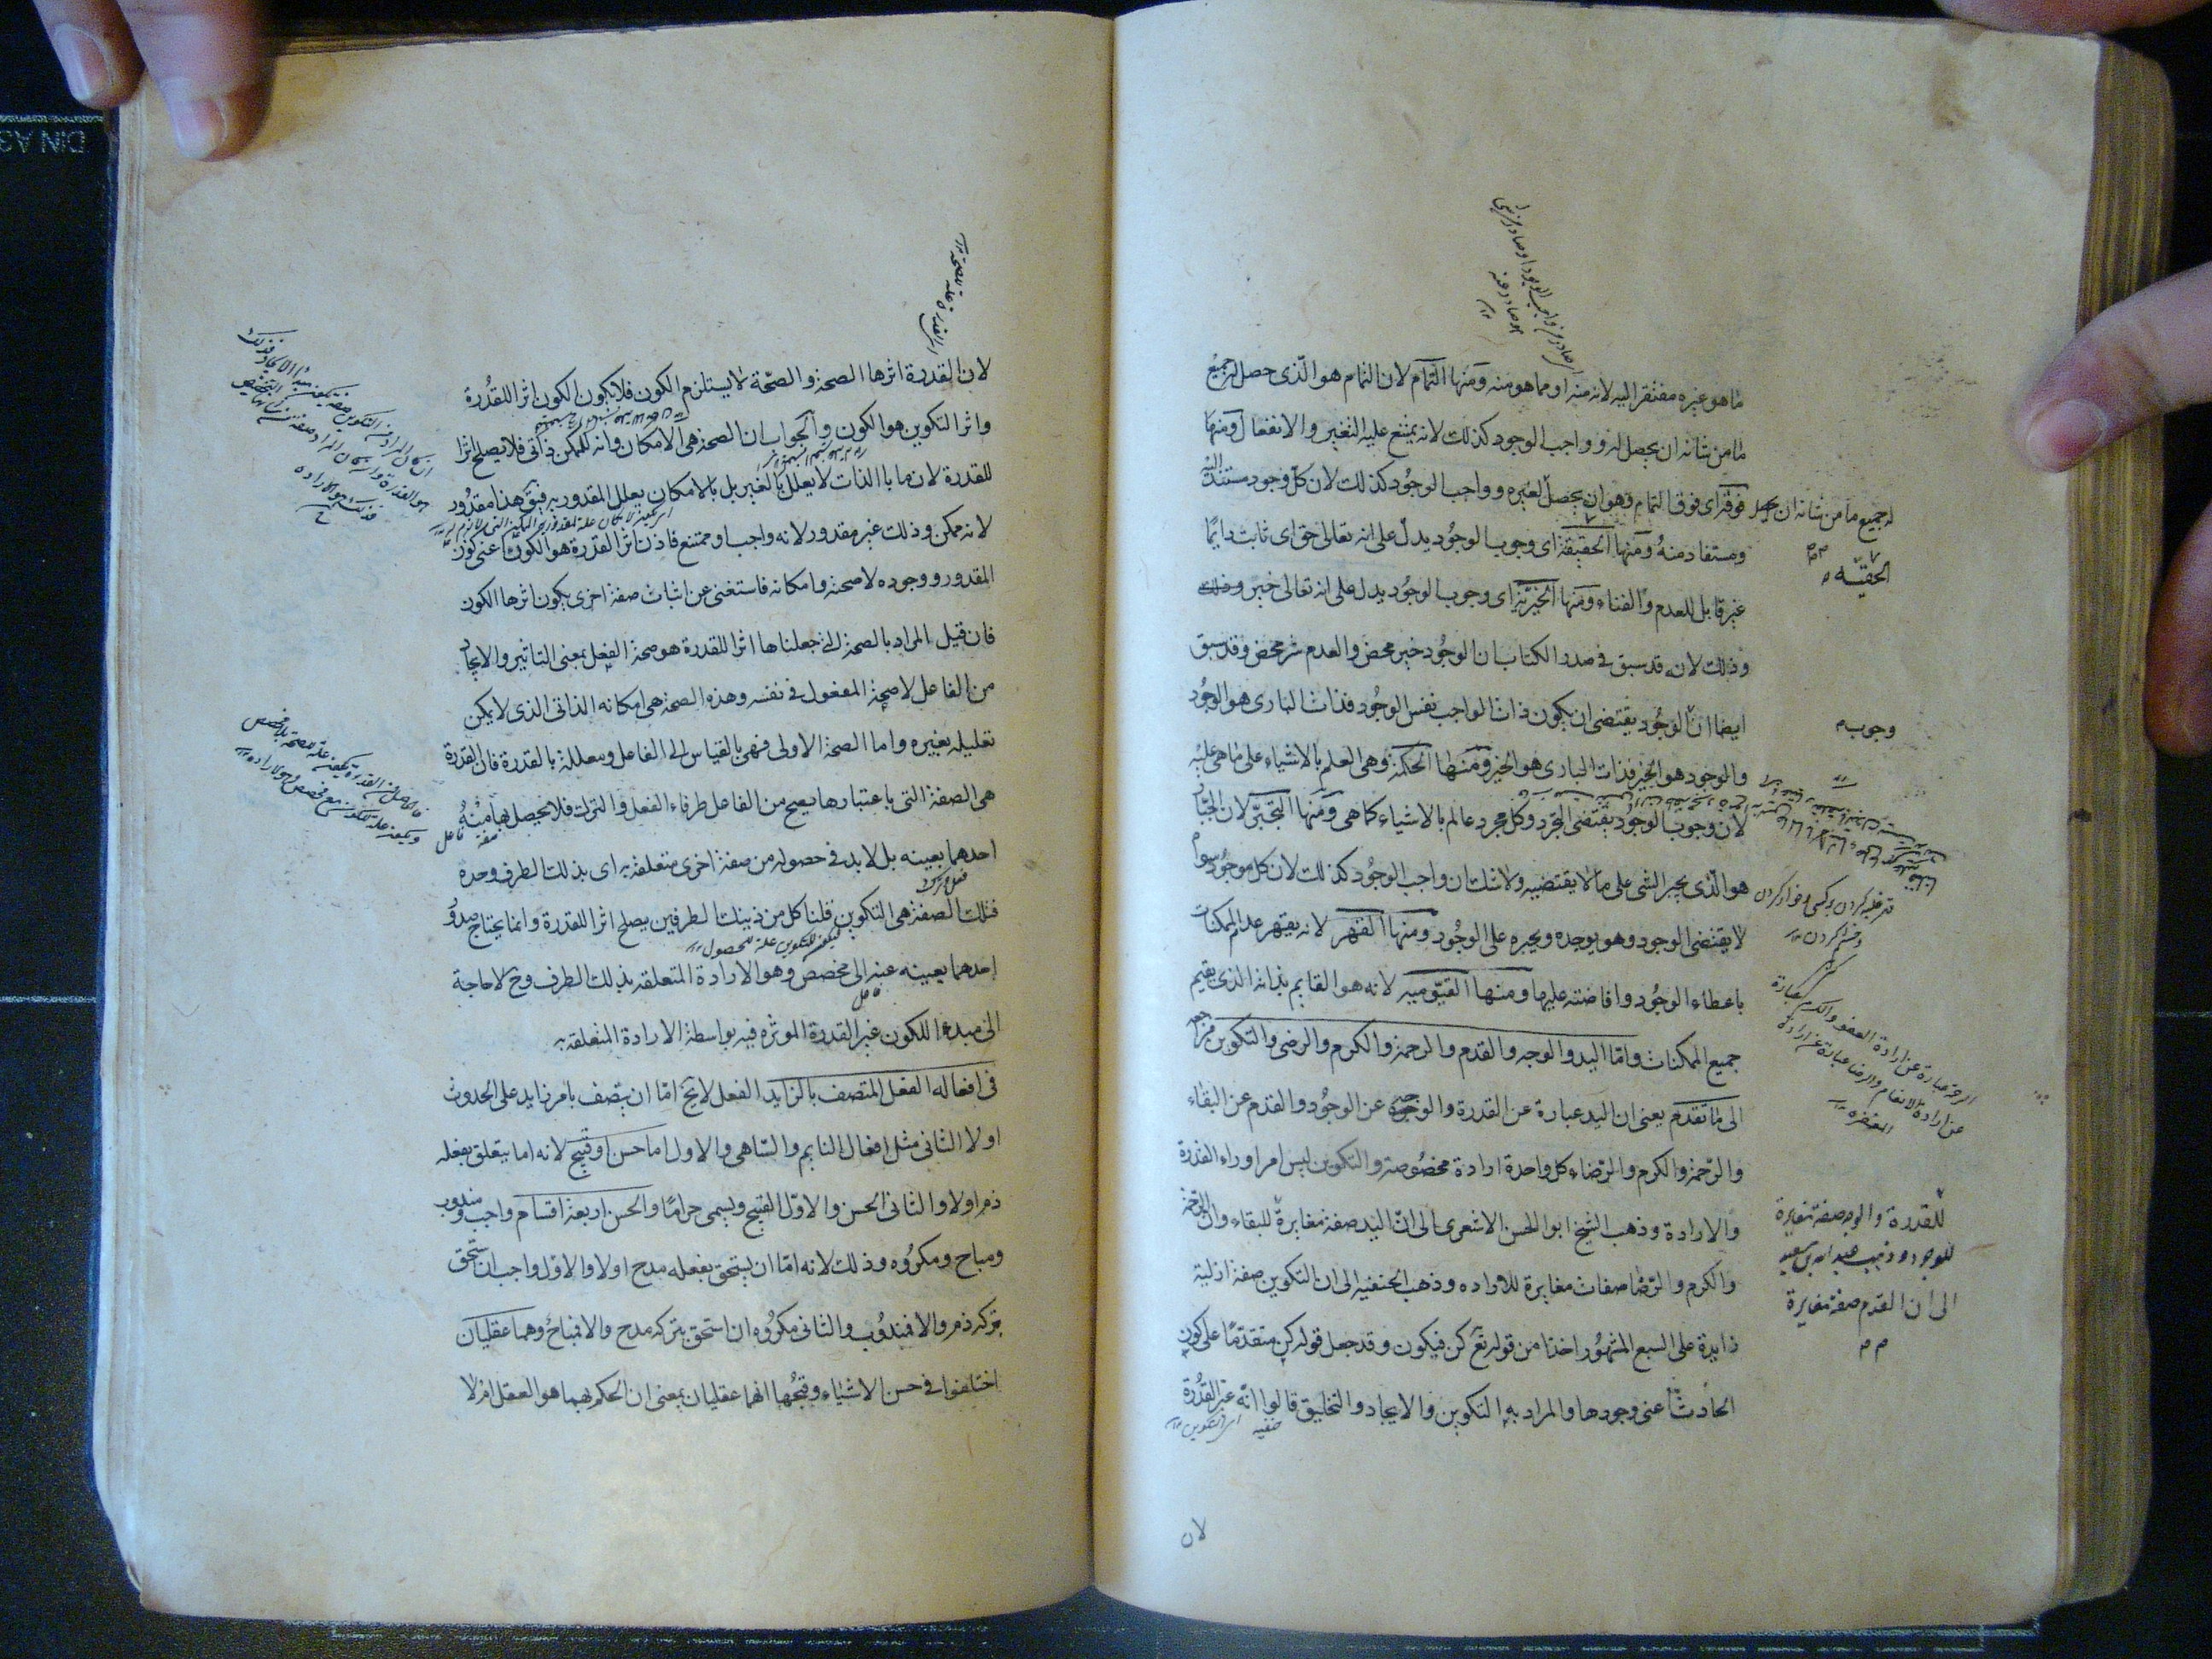 ما هو غيره مفتقر اليه لانه منه او مما هو منه ومنها التمام لان التمام هو الذى حصل له جميع
ما من شانه ان يحصل له وواجب الوجود كذلك لانه يمتنع عليه التغير والانفعال ومنها
فوقه اى فوق التمام وهو ان يحصل لغيره وواجب الوجود كذلك لان كل وجود مستند اليه
له جميع ما من شانه ان يحصل
ومستفاد منه ومنها الحقيقة اى وجوب الوجود يدل على انه تعالى حق اى ثابت دايما
الحقيه
غير قابل للعدم والفناء ومنها الخيرية اى وجوب الوجود يدل على انه تعالى خير
وذلك لانه قد سبق فى صدر الكتاب ان الوجود خير محض والعدم شر محض وقد سبق
ايضا ان الوجود يقتضى ان يكون ذات الواجب نفس الوجود فذات البارى هو الوجود
وجوب
والوجود هو الخير فذات البارى هو الخير ومنها الحكمة وهى العلم بالاشياء على ما هى عليه
لان وجوب الوجود يقتضى التجرد وكل مجرد عالم بالاشياء كما هى ومنها التجبر لان الجبار
هو الذى يجبر الشى على ما لا يقتضيه ولا شك ان واجب الوجود كذلك لان كل موجود سواه
لا يقتضى الوجود وهو يوجده ويجبره على الوجود ومنها القهر لانه يقهر عدم الممكنات
باعطاء الوجود وافاضته عليها ومنها القيومية لانه هو القايم بذاته الذى يقيم
جميع الممكنات واما اليد والوجه والقدم والرحمة والكرم والرضى والتكوين
الى ما تقدم يعنى ان اليد عبارة عن القدرة والوجه عن الوجود والقدم عن البقاء
الرحمة عبارة عن ارادة العفو والكرم عبارة
عن ارادة الانعام والرضا عبارة عن ارادة
المغفره
والرحمة والكرم والرضاء كل واحدة ارادة مخصوصة والتكوين ليس امرا وراء القدرة
والارادة وذهب الشيخ ابو الحسن الاشعرى الى ان اليد صفة مغايرة للبقاء وان الرحمة
للقدرة والوجه صفة مغايرة
للوجود وذهب عبد الله بن سعيد
الى ان القدم صفة مغايرة
والكرم والرضا صفات مغايرة للاراده وذهب الحنفيه الى ان التكوين صفة ازلية
زايدة على السبع المشهور اخذا من قوله تع كن فيكون وقد جعل قوله كن متقدما على كون
الحادث اعنى وجودها والمراد به التكوين والايجاد والتخليق قالوا انه غير القدرة
حنفيه اى التكوين
لان
اى القدرة علة للصحة
لان القدرة اثرها الصحة والصحة لا يستلزم الكون فلا يكون الكون اثرا للقدرة
واثر التكوين هو الكون والجواب ان الصحة هى الامكان وانه للممكن ذاتى فلا يصلح اثرا
للقدرة لان ما بالذات لا يعلل بالغير بل بالامكان يعلل المقدوريه فيق هذا مقدور
لانه ممكن وذلك غير مقدور لانه واجب او ممتنع فاذن اثر القدرة هو الكون اعنى كون
المقدور ووجوده لا صحته وامكانه فاستغنى عن اثبات صفة اخرى يكون اثرها الكون
فان قيل المراد بالصحة التى جعلناها اثرا للقدرة هو صحة الفعل بمعنى التاثير والايجاد
من الفاعل لا صحة المفعول فى نفسه وهذه الصحة هى امكانه الذاتى الذى لا يمكن
تعليله بغيره واما الصحة الاولى فهى بالقياس الى الفاعل ومعللة بالقدرة فان القدرة
هى الصفة التى باعتبارها يصح من الفاعل طرفاء الفعل والترك فلا يحصل بها منه
احدهما بعينه بل لا بد فى حصوله من صفة اخرى متعلقة به اى بذلك الطرف وحدة
فتلك الصفة هى التكوين قلنا كل من ذينك الطرفين يصلح اثرا للقدرة وانما يحتاج صدور
احدهما بعينه عنه الى مخصص وهو الارادة المتعلقه بذلك الطرف وح لا حاجة
الى مبدء للكون غير القدرة الموثره فيه بواسطة الارادة المتعلقه به
فى افعاله الفعل المتصف بالزايد الفعل لا يخ اما ان يتصف بامر زايد على الحدوث
او لا الثانى مثل افعال النايم والساهى والاول اما حسن او قبيح لانه اما يتعلق بفعله
ذم او لا والثانى الحسن والاول القبيح ويسمى حراما والحسن اربعة اقسام واجب ومندوب
ومباح ومكروه وذلك لانه اما ان يستحق بفعله مدح او لا والاول واجب ان استحق
بتركه ذم والا فمندوب والثانى مكروه ان استحق بتركه مدح والا فمباح وهما عقليان
اختلفوا فى حسن الاشياء وقبحها انهما عقليان بمعنى ان الحكم بهما هو العقل او لا